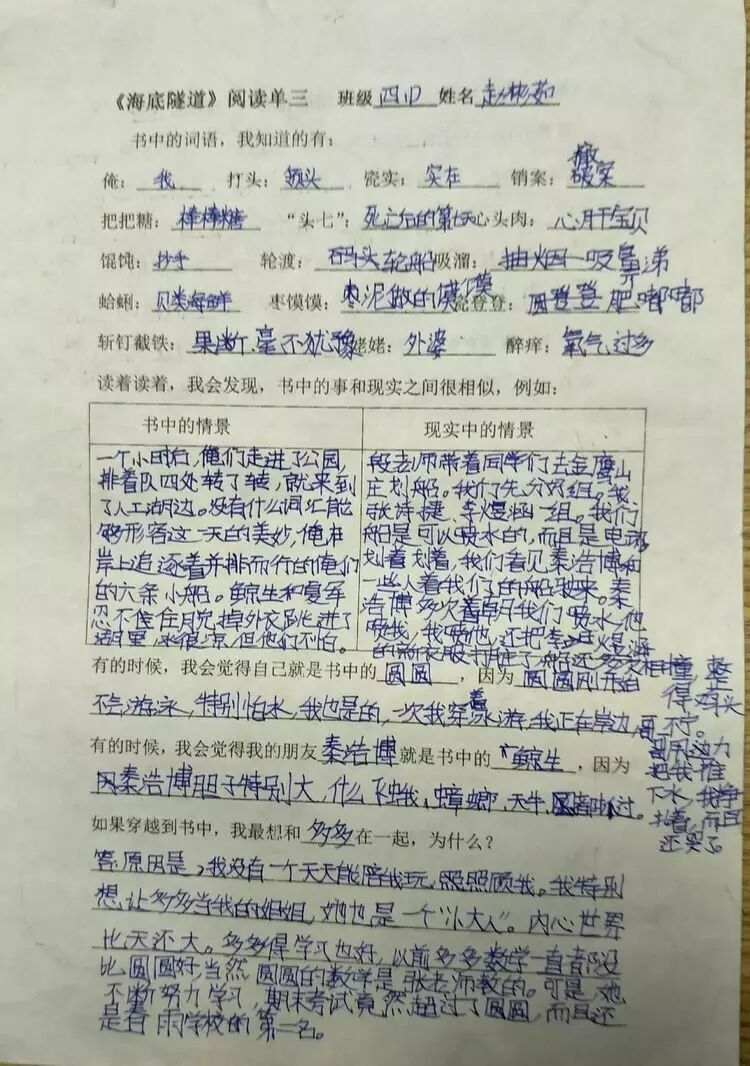 《海底隧道》阅读单三 班级 四(1) 姓名 赵彬茹
书中的词语，我知道的有：
俺： 我 打头： 领头 瓷实： 实在 销案： 撤破案
把把糖： 棒棒糖 “头七”： 死亡后的第七天 心头肉： 心肝宝贝
馄饨： 抄手 轮渡： 码头轮船 吸溜： 抽烟一吸鼻涕
蛤蜊： 贝类海鲜 枣馍馍： 枣泥做的馍馍 瓷登登： 圆登登肥嘟嘟
斩钉截铁： 果断、毫不犹豫 姥姥： 外婆 醉痒： 氧气过多
读着读着，我会发现，书中的事和现实之间很相似，例如：
书中的情景 现实中的情景
一个小时后，俺们走进了公园，
排着队四处转了转，就来到
了人工湖边。没有什么词汇能
够形容这一天的美妙，俺在
岸上追逐着并排而行的俺们
的六条小船。鲸生和夏军
忍不住脱掉外衣跳进了
湖里，水很凉，但他们不怕。
段老师带着同学们去金鹰山
庄划船。我们先分好组。我、
张诗捷、李煜涵一组。我们
船是可以喷水的，而且是电动
划着划着，我们看见秦浩博和
一些人着我们的船驶来。秦
浩博多次着朝我们喷水，他
喷我，我喷他，还把李煜涵
的新衣服打脏了，船还多次相撞，整得鸡头
有的时候，我会觉得自己就是书中的 圆圆 ，因为 圆圆刚开始
不会游泳，特别怕水，我也是的，一次我穿着泳游，我正在岸边，哥
不宁。
哥用边力
把我推
下水，我挣
扎着，而且
还哭了。
有的时候，我会觉得我的朋友 秦浩博 就是书中的 鲸生 ，因为
因秦浩博胆子特别大，什么飞蛾、蟑螂、天牛
如果穿越到书中，我最想和 多多 在一起，为什么？
答：原因是，我没有一个天天能陪我玩，照照顾我。我特别
想让多多当我的姐姐，她也是一个“小大人”。内心世界
比天还大。多多得学习也好，以前多多数学一直都没
比圆圆好，当然圆圆的数学是张老师教的。可是，她
不断努力学习，期末考试竟然超过了圆圆，而且还
是春雨学校的第一名。